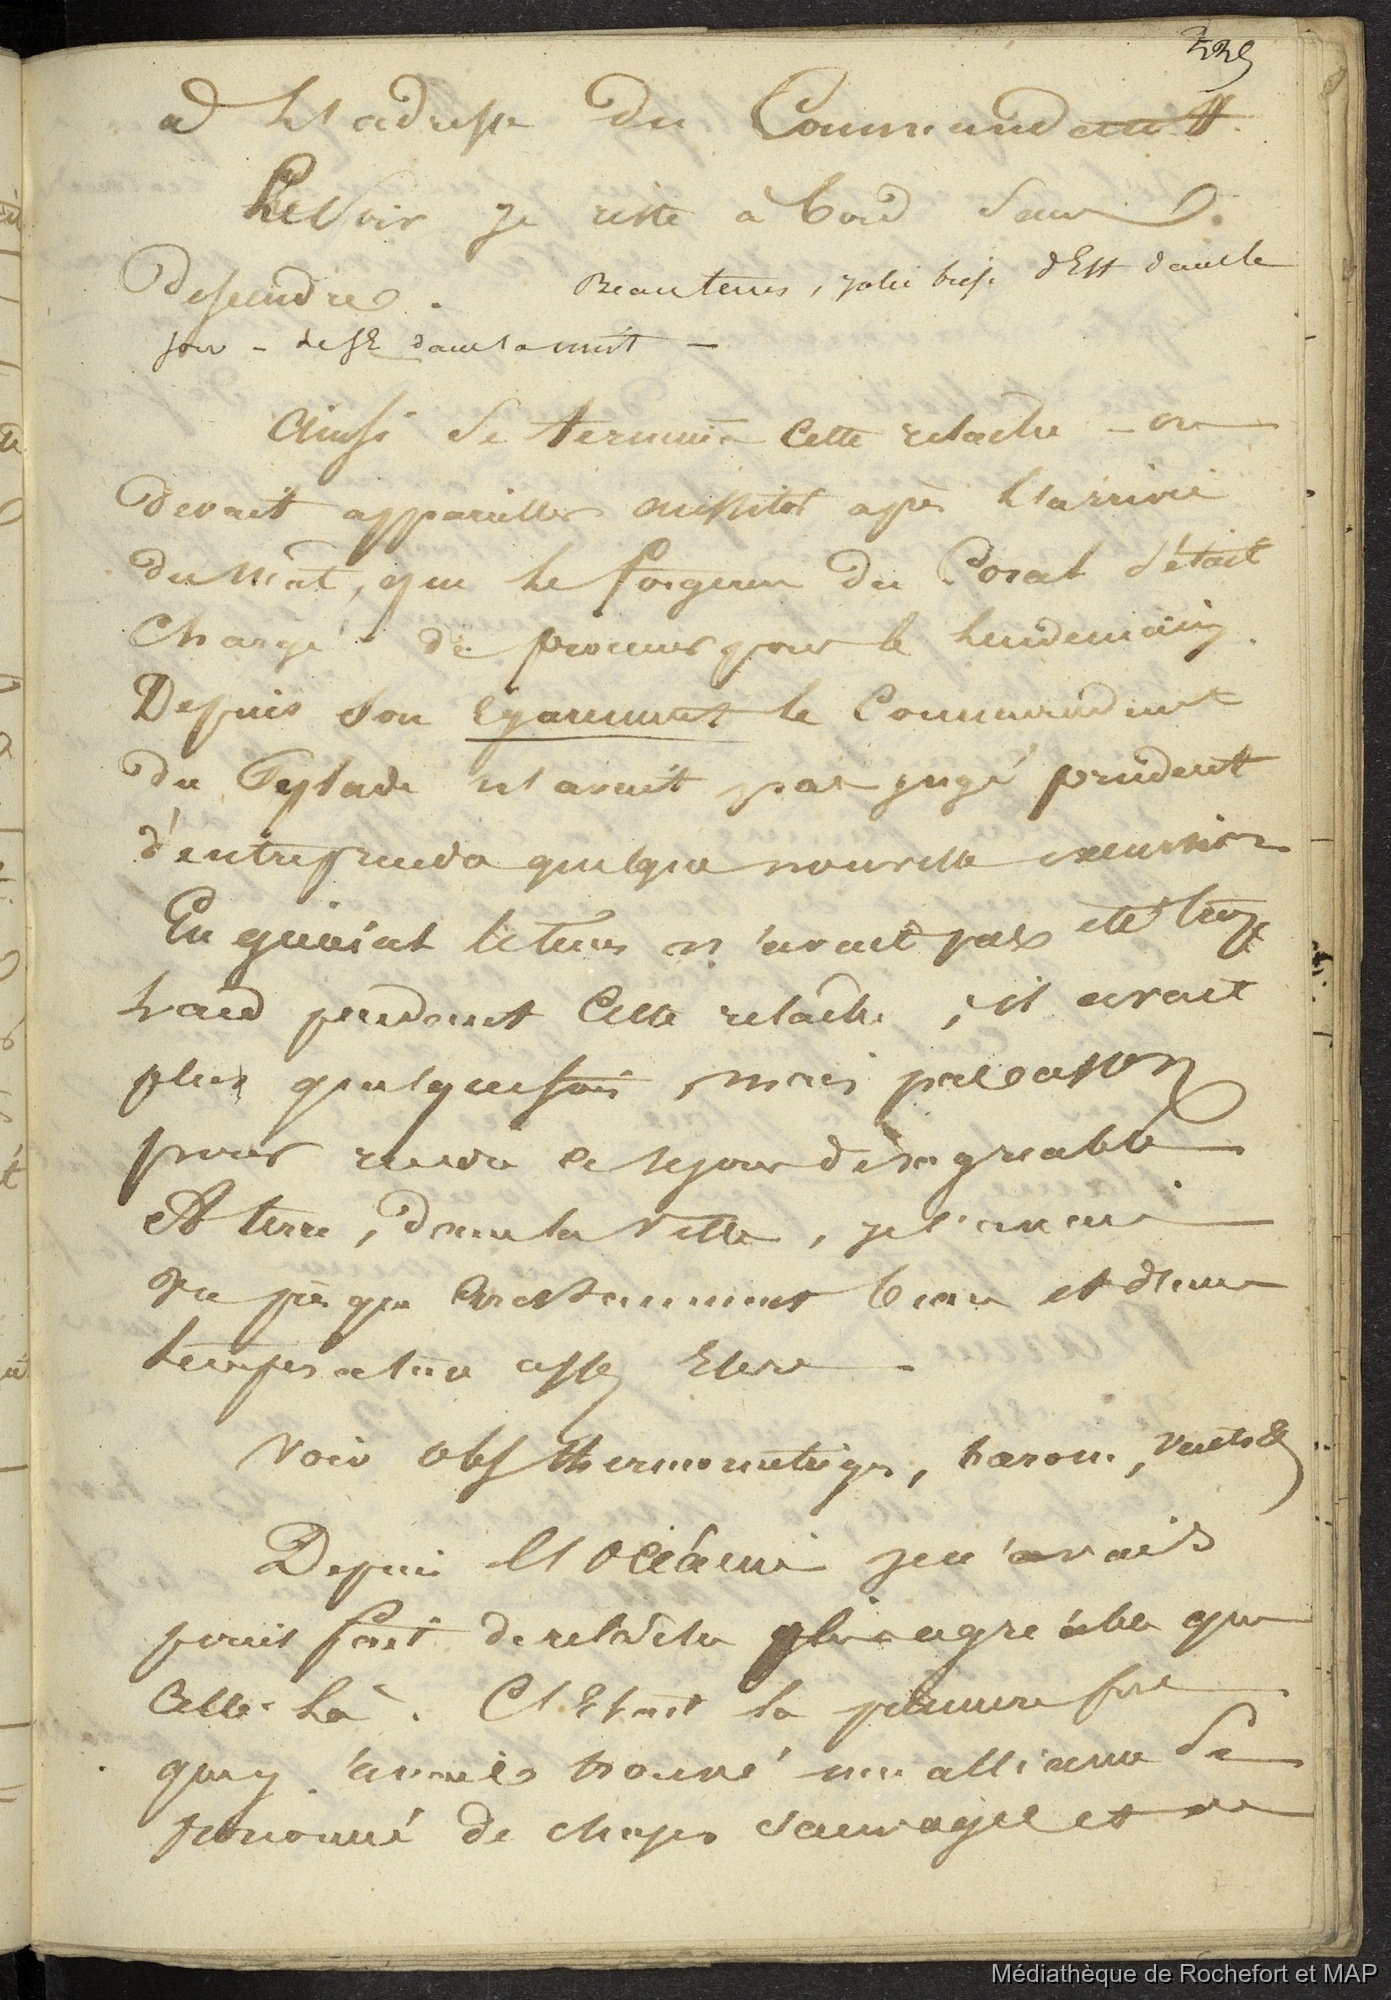 à l'adresse du Commandant.
Le Soir je reste à bord sans
descendre. Beau tems, jolie brise d'Est dans le
jour - de SE dans la nuit -
Ainsi se termine cette relache - on
devait appareiller aussitot après l'arrivée
du mât, que le forgeron du Corail s'était
chargé de procurer pour le lendemain.
Depuis son égarement le Commandant
du Pylade n'avait pas jugé prudent
d'entreprendre quelque nouvelle excursion
En général le tems n'avait pas été trop
chaud pendant cette relache, il avait
plu quelquefois, mais pas assez
pour rendre le séjour désagréable
A terre, dans la ville, je l'avais
vu presque constamment beau et d'une
température assez élevée -
Voir obs thermometriqs, barom, vents &
Depuis l'océanie je n'avais
point fait de relache plus agréable que
celle-là. C'était la première fois
que j'avais trouvé un alliance de
de choses sauvages et de